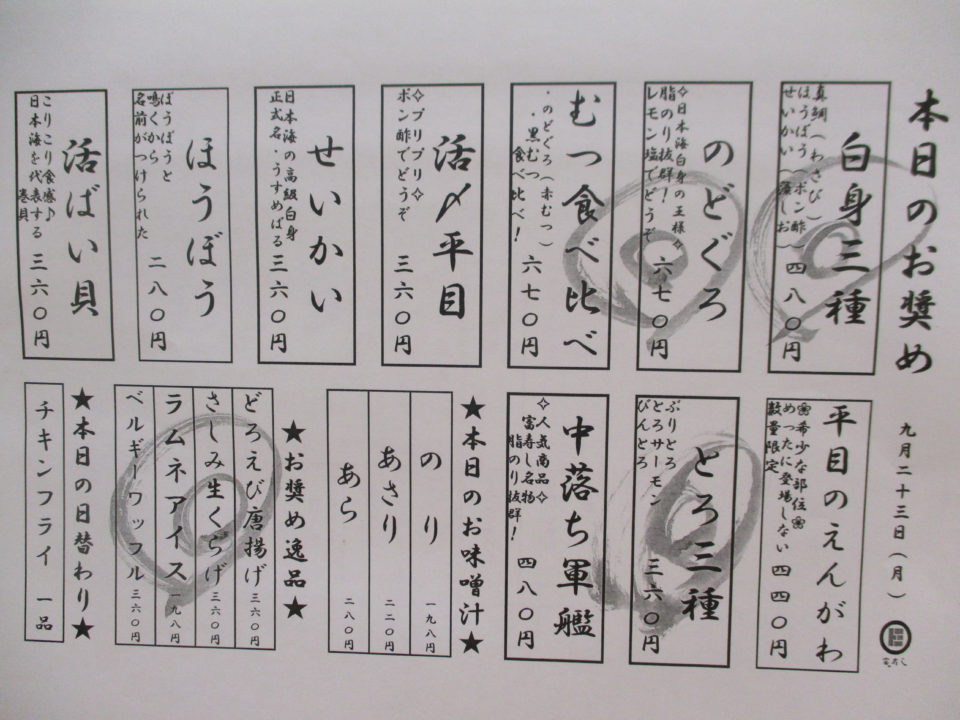 本日のお奨め
九月二十三日(月)
白身三種
真鯛(わさび)
ほうぼう(ポン酢)
せいかい(藻しお)
四八〇円
のどぐろ
✧日本海白身の王様✧
脂のり抜群!
レモン塩でどうぞ
六七〇円
むつ食べ比べ
・のどぐろ(赤むつ)
・黒むつ
食べ比べ!
六七〇円
活〆平目
✧プリプリ✧
ポン酢でどうぞ
三六〇円
せいかい
日本海の高級白身
正式名・うすめばる
三六〇円
ほうぼう
ぼうぼうと
鳴くから
名前がつけられた
二八〇円
活ばい貝
こりこり食感♪
日本海を代表する
巻貝
三六〇円
平目のえんがわ
❀希少な部位❀
めったに登場しない
数量限定
四四〇円
とろ三種
ぶりとろ
とろサーモン
びんとろ
三六〇円
中落ち軍艦
✧人気商品✧
富寿し名物
脂のり抜群!
四八〇円
★本日のお味噌汁★
のり 一九八円
あさり 二二〇円
あら 二八〇円
★お奨め逸品★
どろえび唐揚げ 三六〇円
さしみ生くらげ 三六〇円
ラムネアイス 一九八円
ベルギーワッフル 三六〇円
★本日の日替わり★
チキンフライ 一品